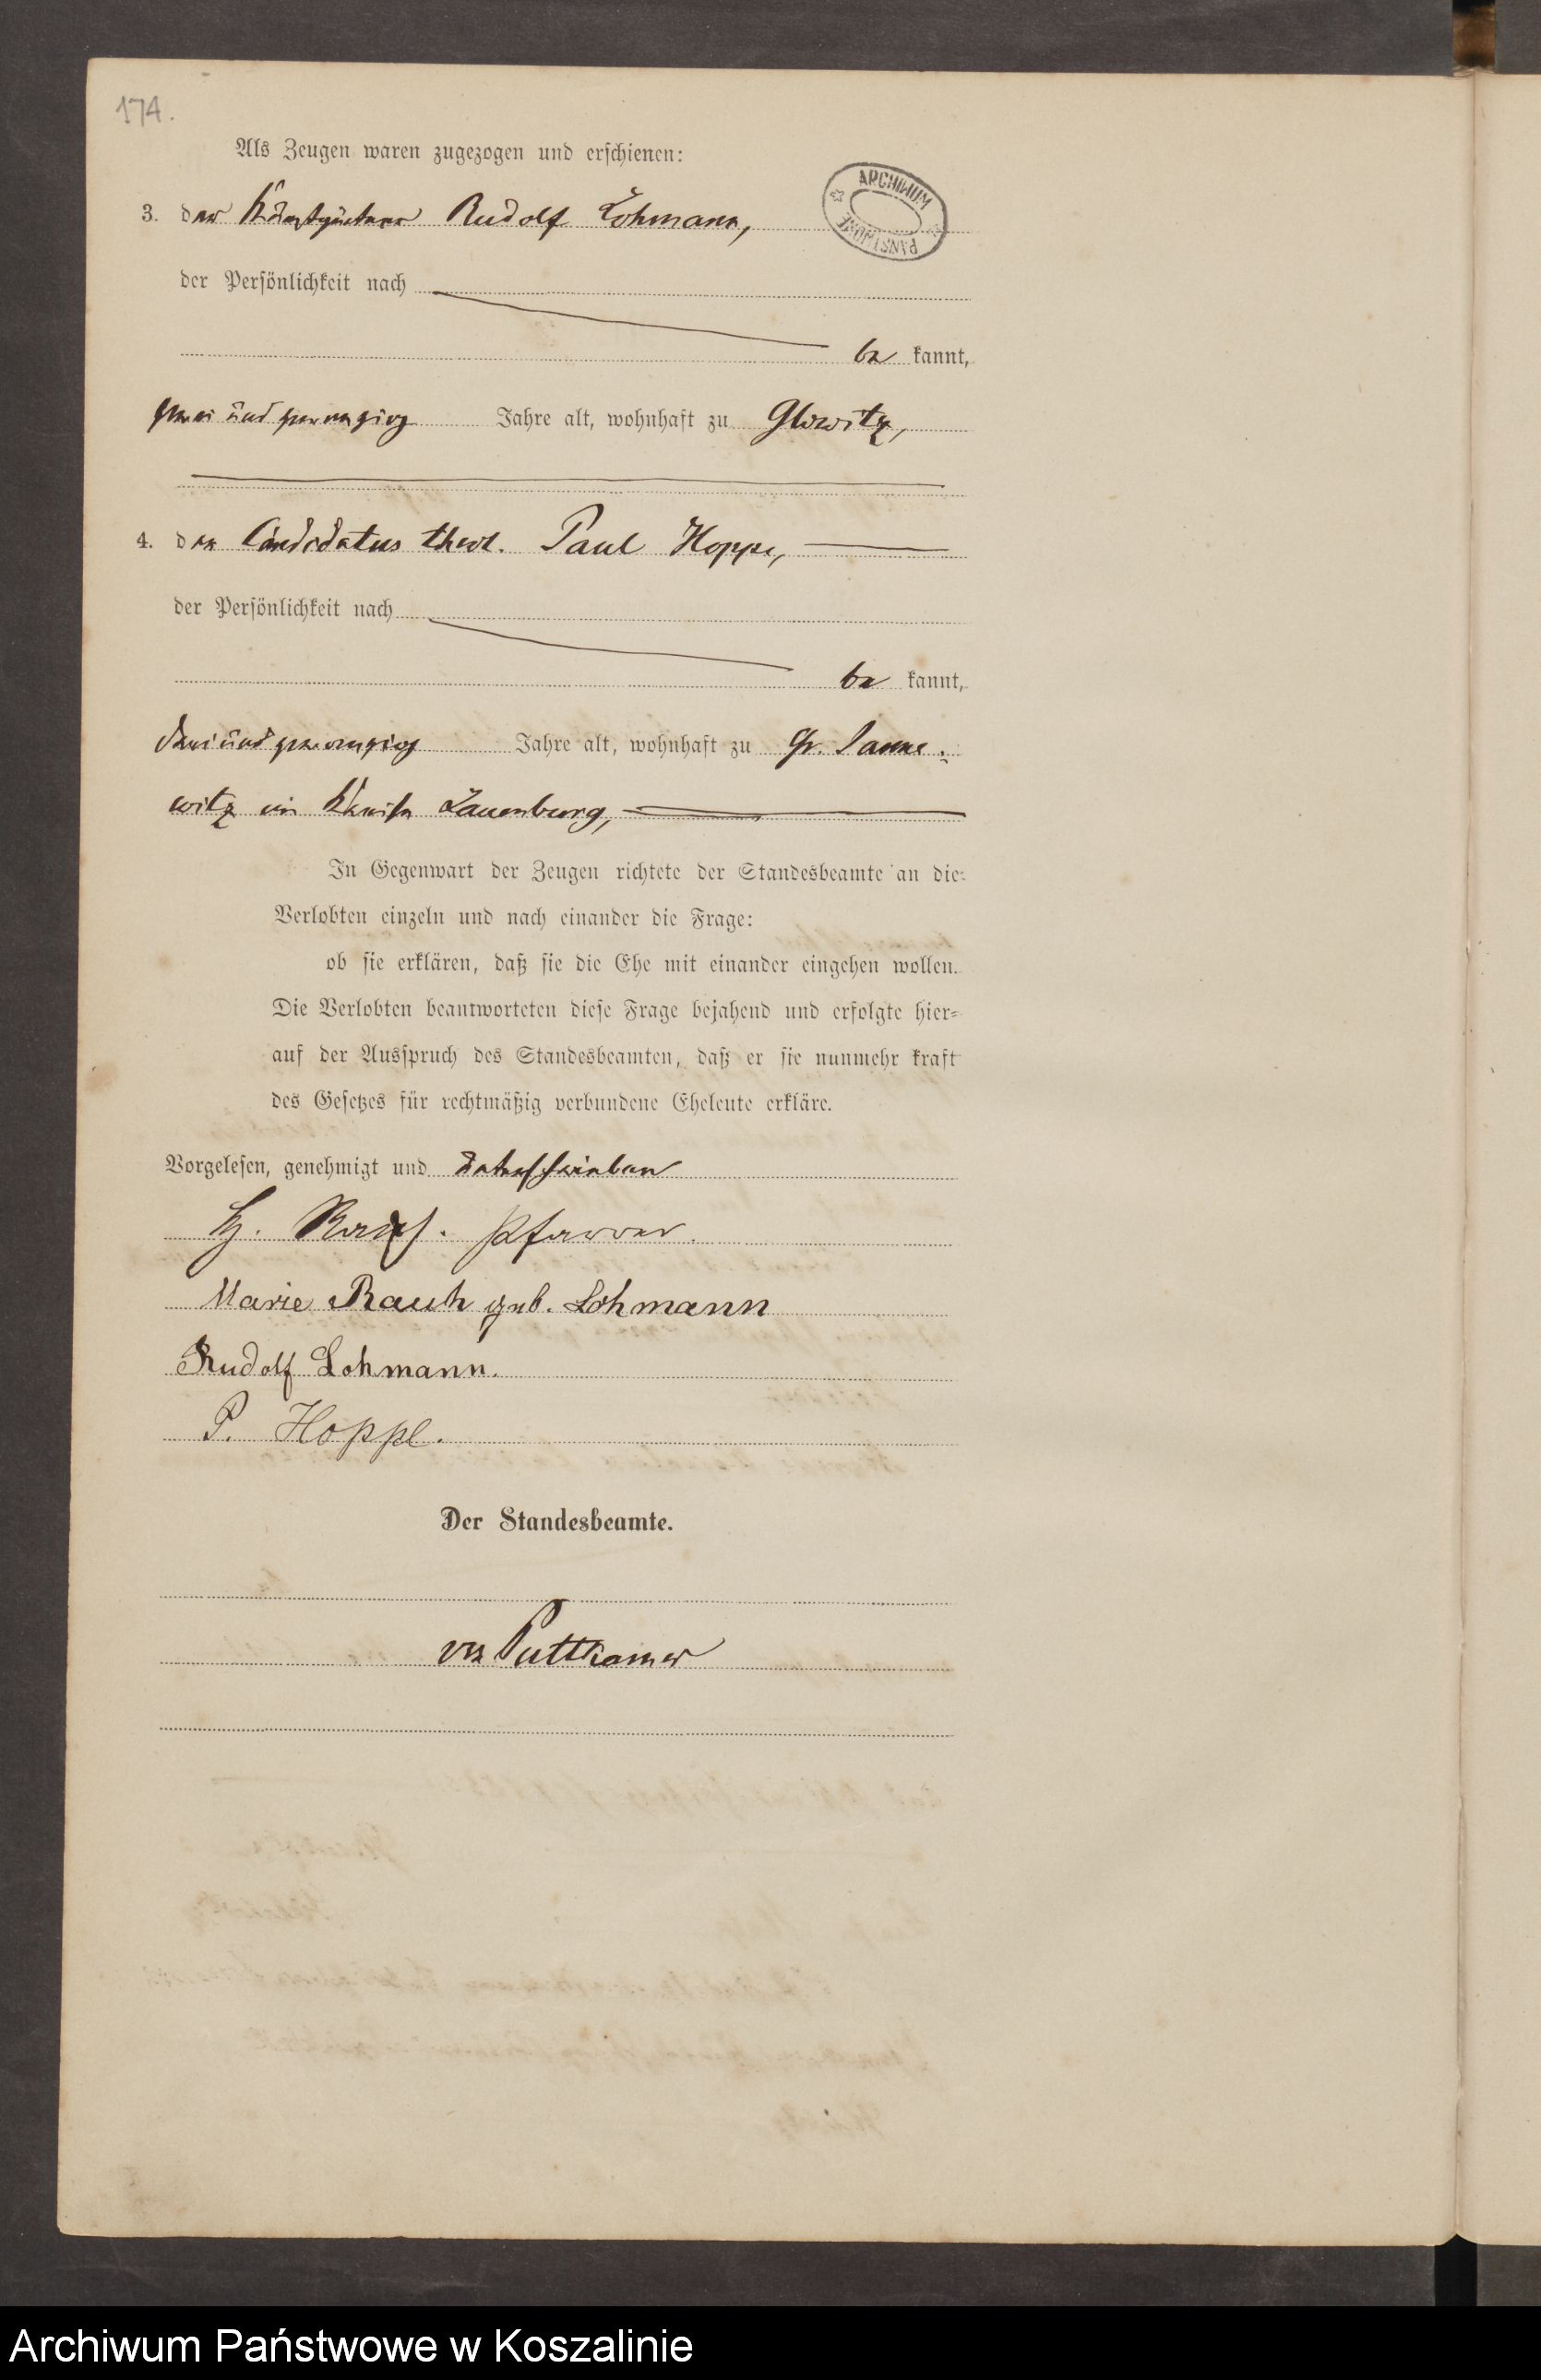 174.
Als Zeugen waren zugezogen und erschienen:
ARCHIWUM
PAŃSTWOWE
3. der Kunstgärtner Rudolf Lohmann,
der Persönlichkeit nach
be kannt,
zwei und zwanzig Jahre alt, wohnhaft zu Glowitz,
4. der Candidatus theol. Paul Hoppe,
der Persönlichkeit nach
be kannt,
drei und zwanzig Jahre alt, wohnhaft zu Gr. Janne-
witz im Kreise Lauenburg,
In Gegenwart der Zeugen richtete der Standesbeamte an die
Verlobten einzeln und nach einander die Frage:
ob sie erklären, daß sie die Ehe mit einander eingehen wollen.
Die Verlobten beantworteten diese Frage bejahend und erfolgte hier-
auf der Ausspruch des Standesbeamten, daß er sie nunmehr kraft
des Gesetzes für rechtmäßig verbundene Eheleute erkläre.
Vorgelesen, genehmigt und unterschrieben
Rauh. Pfarrer.
Marie Rauh geb. Lohmann
Rudolf Lohmann.
P. Hoppe.
Der Standesbeamte.
von Puttkamer
Archiwum Państwowe w Koszalinie